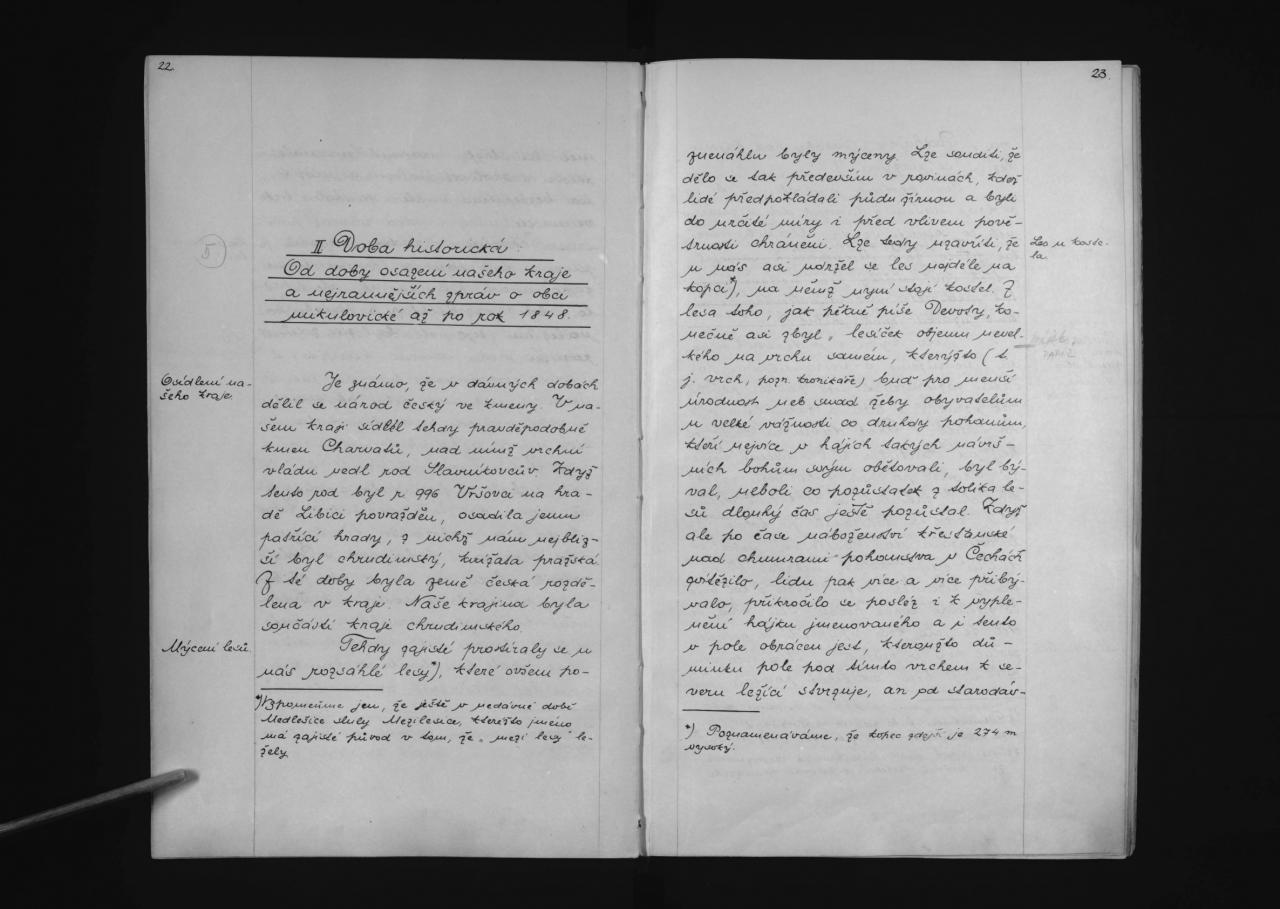 22.
5
II Doba historická:
Od doby osazení našeho kraje
a nejrannějších zpráv o obci
mikulovické až po rok 1848.
Osídlení na-
šeho kraje.
Je známo, že v dávných dobách
dělil se národ český ve kmeny. V na-
šem kraji sídlil tehdy pravděpodobně
kmen Charvatů, nad nímž vrchní
vládu vedl rod Slavníkovcův. Když
tento rod byl r. 996 Vršovci na hra-
dě Libici povražděn, osadila jemu
patřící hrady, z nichž nám nejbliž-
ší byl chrudimský, knížata pražská.
Z té doby byla země česká rozdě-
lena v kraje. Naše krajina byla
součástí kraje chrudimského.
Mýcení lesů.
Tehdy zajisté prostíraly se u
nás rozsáhlé lesy*), které ovšem po-
*) Vzpomeňme jen, že ještě v nedávné době
Medlešice sluly Mezilesice, kteréžto jméno
má zajisté původ v tom, že „mezi lesy" le-
žely.
23.
znenáhlu byly mýceny. Lze souditi, že
dělo se tak především v rovinách, kdež
lidé předpokládali půdu žírnou a byli
do určité míry i před vlivem pově-
trnosti chráněni. Lze tedy uzavříti, že
u nás asi udržel se les nejdéle na
kopci*), na němž nyní stojí kostel. Z
lesa toho, jak pěkně píše Devoty, ko-
nečně asi zbyl „lesíček objemu nevel-
kého na vrchu samém, kterýžto (t.
j. vrch, pozn. kronikáře) buď pro menší
úrodnost neb snad žeby obyvatelům
u velké vážnosti co druhdy pohanům,
kteří nejvíce v hájích takých návrš-
ních bohům svým obětovali, byl bý-
val, neboli co pozůstatek z tolika le-
sů dlouhý čas ještě pozůstal. Když
ale po čase náboženství křesťanské
nad chmurami pohanstva v Čechách
zvítězilo, lidu pak více a více přibý-
valo, přikročilo se posléz i k vyple-
nění hájku jmenovaného a i tento
v pole obrácen jest, kteroužto dů-
minku pole pod tímto vrchem k se-
veru ležící stvrzuje, an od starodáv-
Les u koste-
la.
*) Poznamenáváme, že kopec zdejší je 274 m
vysoký.